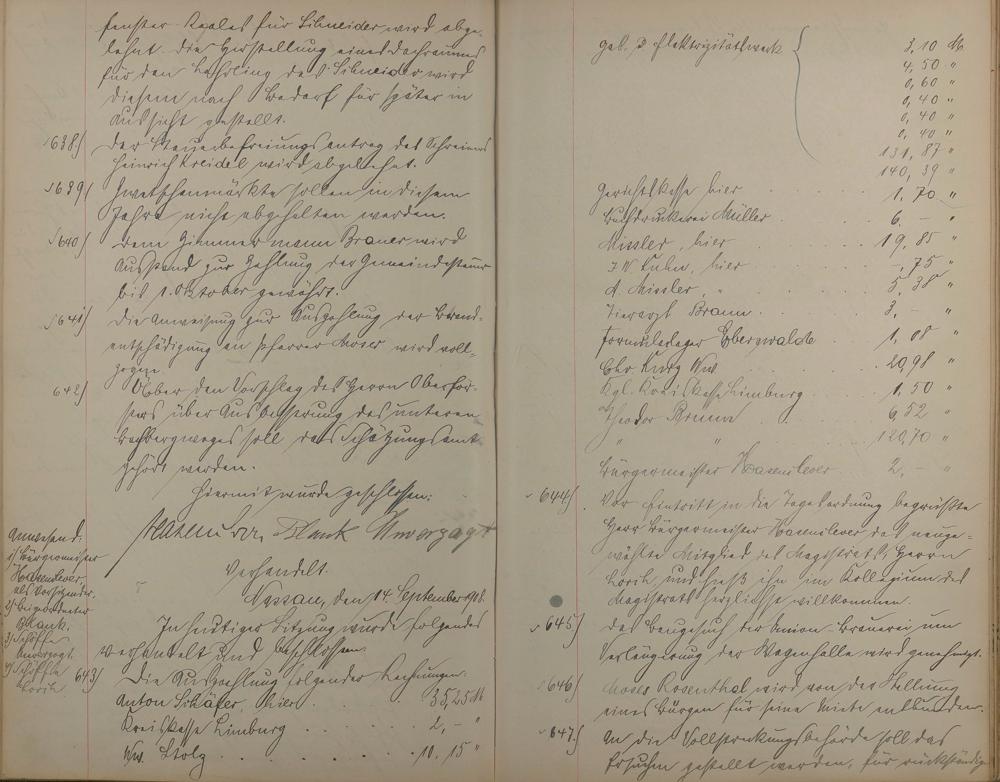 fenster Raales für Schneider wird abge-
lehnt. Die Herstellung eines Dachraumes
für den Lehrling des Schneider wird
diesem nach Bedarf für später in
Aussicht gestellt.
638) Der Steuerbefreiungsantrag des Schreiners
Heinrich Kreidel wird abgelehnt.
639) Zwetschenmärkte sollen in diesem
Jahre nicht abgehalten werden.
640) Dem Zimmermann Brauer wird
Ausstand zur Zahlung der Gemeindesteuer
bis 1. Oktober gewährt.
641) Die Anweisung zur Auszahlung der Brand-
entschädigung an Pfarrer Moser wird voll-
zogen.
642) Ueber den Vorschlag des Herrn Oberför-
sters über Ausbesserung des unteren
Bachbergweges soll das Schätzungsamt
gehört werden.
Hiermit wurde geschlossen:
Hasenclever Blank Unverzagt
Anwesend:
1) Bürgermeister
Hasenclever
als Vorsitzender.
2) Beigeordneter
Blank.
3) Schöffe
Unverzagt.
4) Schöffe
Lorik.
Verhandelt
Nassau, den 14. September
In heutiger Sitzung wurde folgendes
verhandelt und beschlossen
643) Die Auszahlung folgender Rechnungen.
Anton Schäfer, hier . . . 35,25 M
Kreiskasse Limburg . . . . 2,– "
Ww. Stolz . . . . . . 10,15 "
Geb. d. Elektrizitätswerk 3,10 M
4,50 "
0,60 "
0,40 "
0,40 "
0,40 "
131,87 "
140,39 "
Gerichtskasse hier . . . 1,70 "
Buchdruckerei Müller . . . 6,– "
Missler, hier . . . 19,85 "
J W Kuhn, hier . . . –,75 "
A. Missler, " . . . 5,38 "
Tierarzt Braun . . . 3,– "
Formularlager Eberswalde . . 1,08 "
Chr. Kurz Ww . . . 20,98 "
Kgl. Kreiskasse Limburg . . . 1,50 "
Theodor Bruun . . . 6 52 "
" " . . . 120,70 "
Bürgermeister Hasenclever . . 2,– "
644) Vor Eintritt in die Tagesordnung begrüßte
Herr Bürgermeister Hasenclever das neuge-
wählte Mitglied des Magistrats, Herrn
Lorik, und hieß ihn im Kollegium des
Magistrats herzlichst willkommen.
645) Das Baugesuch der Union-Brauerei um
Verlängerung der Wagenhalle wird genehmigt.
646) Moses Rosenthal wird von der Stellung
eines Bürgen für seine Miete entbunden.
647) An die Vollstreckungsbehörde soll das
Ersuchen gestellt werden, für rückständige